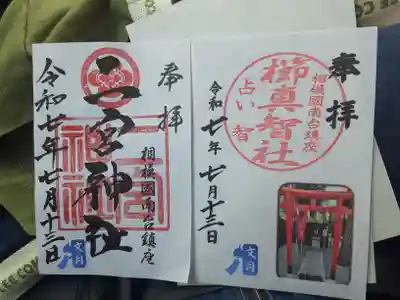 奉拝
相模國南台鎮座
櫛眞智社
占い 智
令和七年七月十三日
文月
奉拝
相模國南台鎮座
二宮神社
令和七年七月十三日
文月